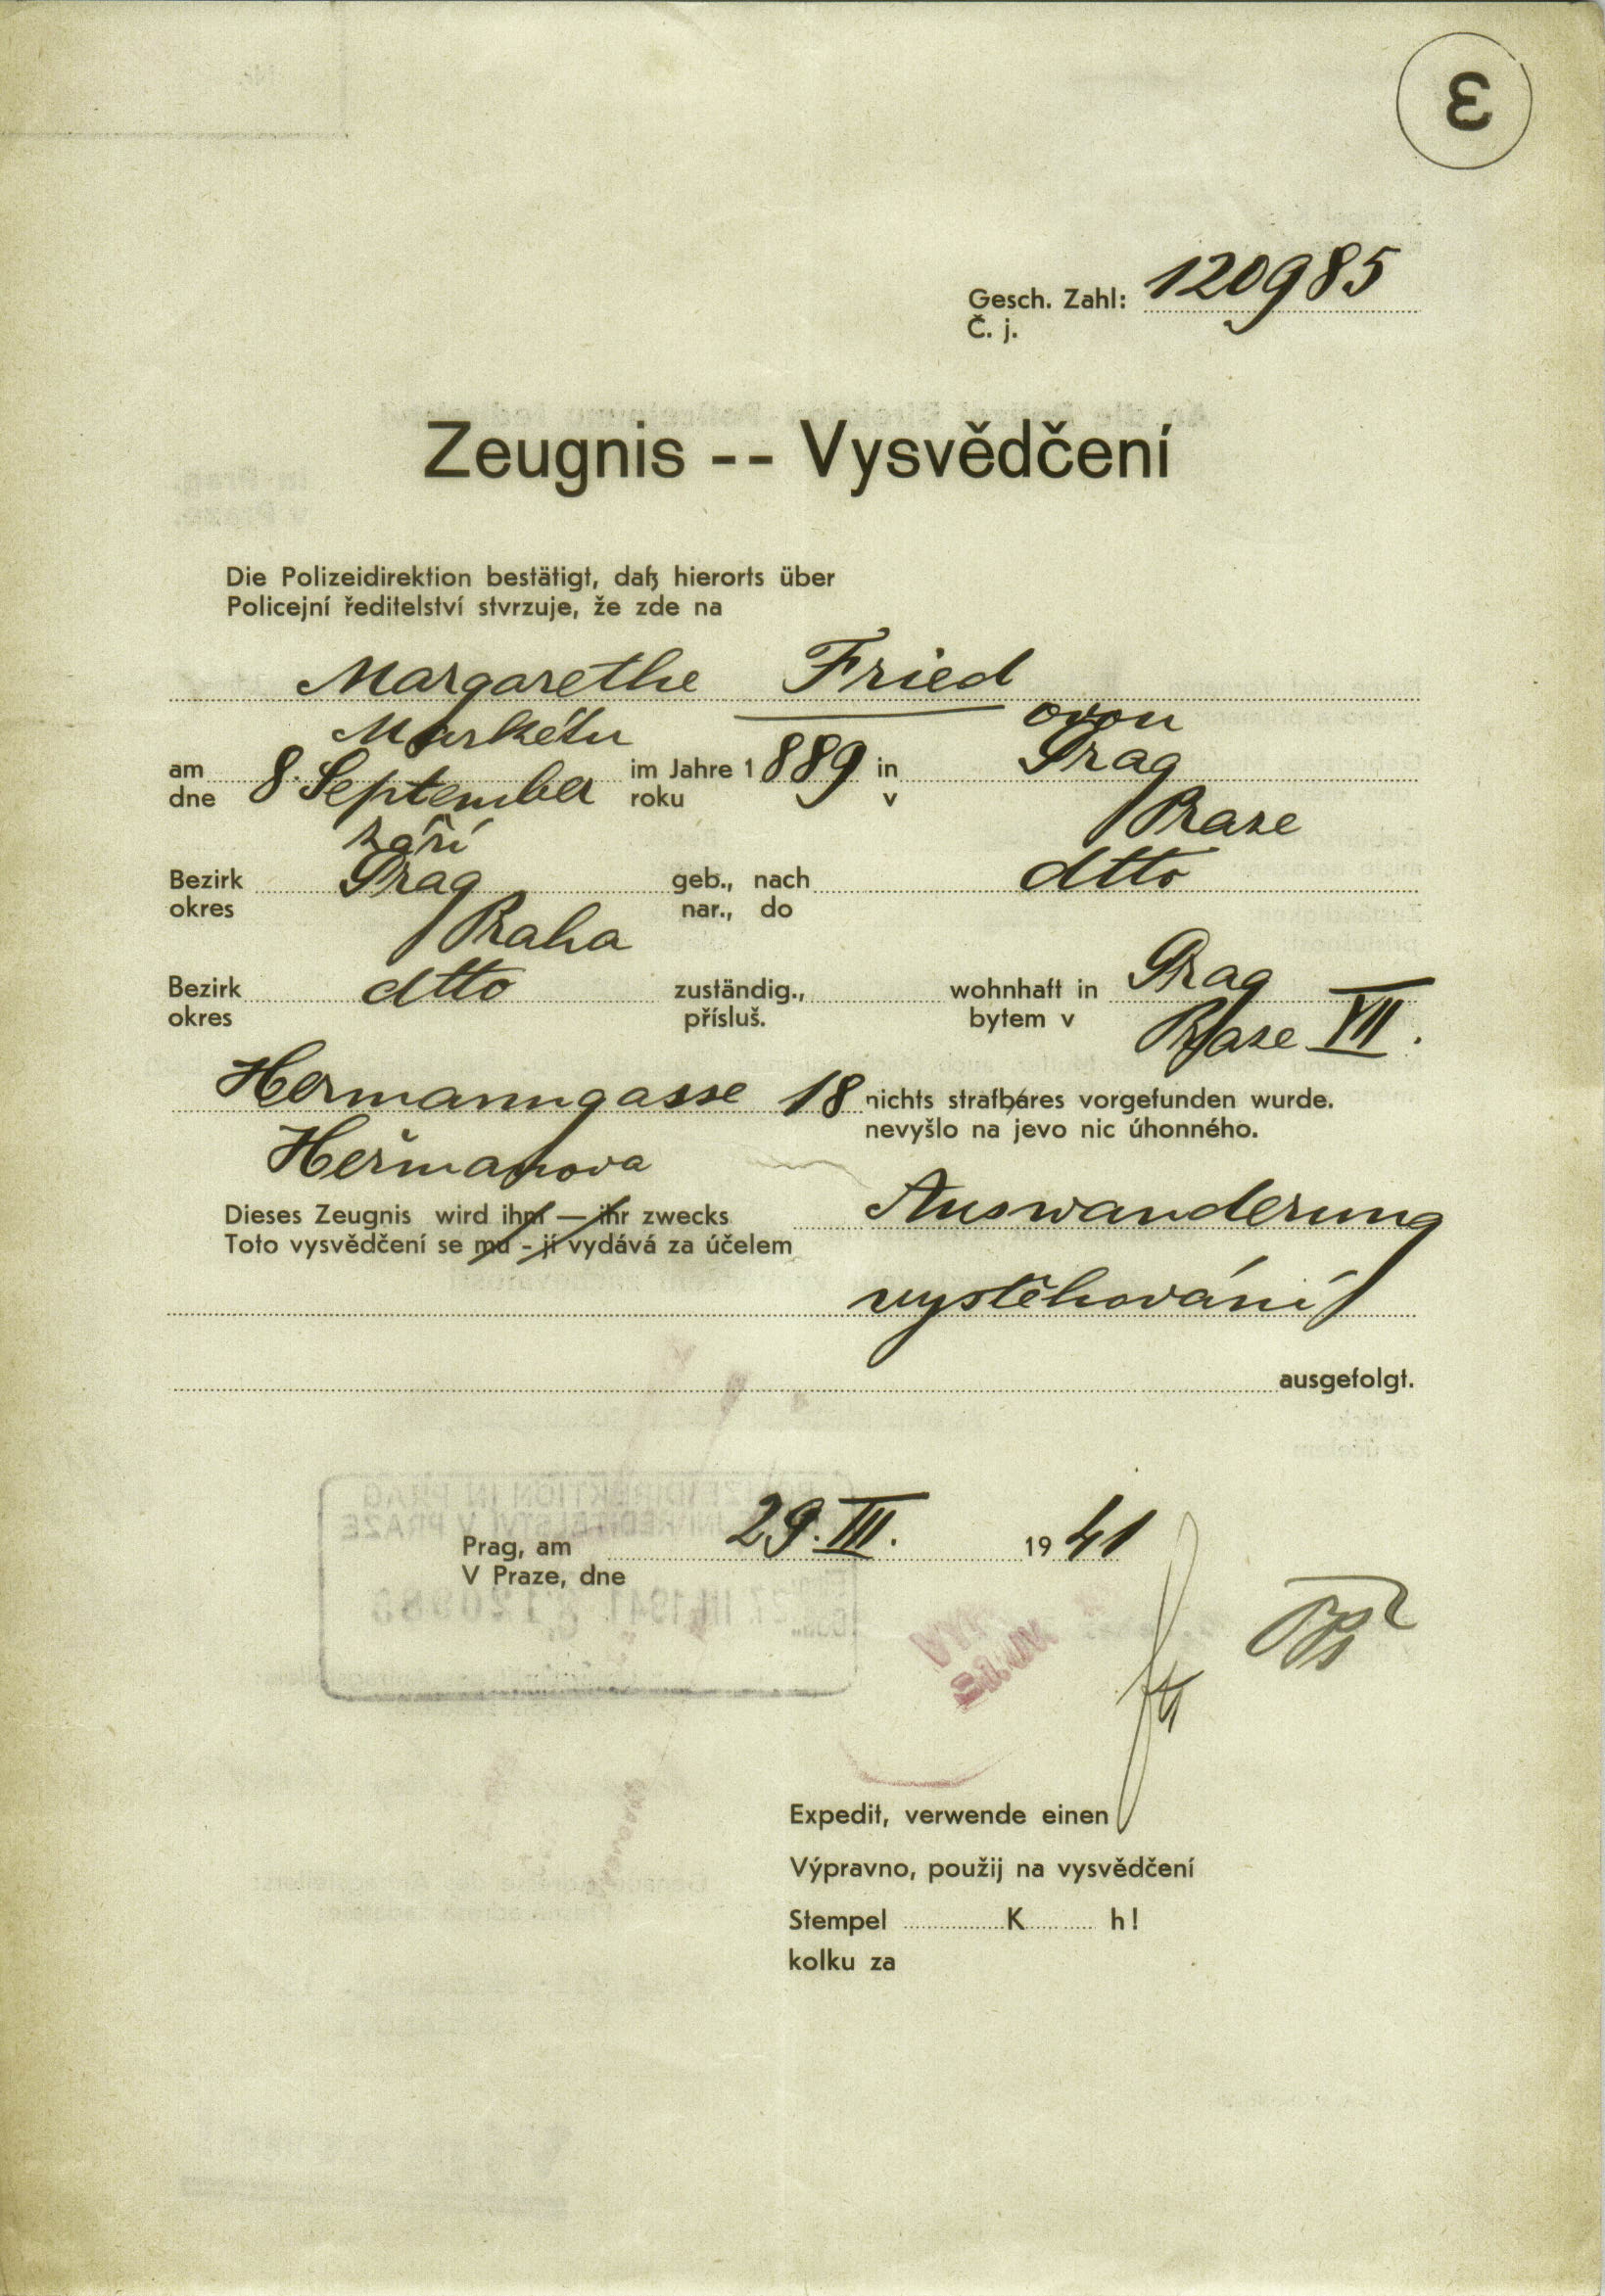 3
Gesch. Zahl: 120985
Č. j.
Zeugnis -- Vysvědčení
Die Polizeidirektion bestätigt, daß hierorts über
Policejní ředitelství stvrzuje, že zde na
Margarethe Fried
Markétu ovou
am 8. September im Jahre 1889 in Prag
dne září roku v Praze
Bezirk Prag geb., nach dtto
okres Praha nar., do
Bezirk dtto zuständig., wohnhaft in Prag
okres přísluš. bytem v Praze VII.
Hermanngasse 18 nichts strafbares vorgefunden wurde.
Heřmanova nevyšlo na jevo nic úhonného.
Dieses Zeugnis wird ihm — ihr zwecks Auswanderung
Toto vysvědčení se mu - jí vydává za účelem
vystěhování
ausgefolgt.
POLIZEIDIREKTION IN PRAG
ŘEDITELSTVÍ V PRAZE
Prag, am 29. III. 1941
V Praze, dne
27. III. 1941 120985
Expedit, verwende einen
Výpravno, použij na vysvědčení
Stempel K h!
kolku za